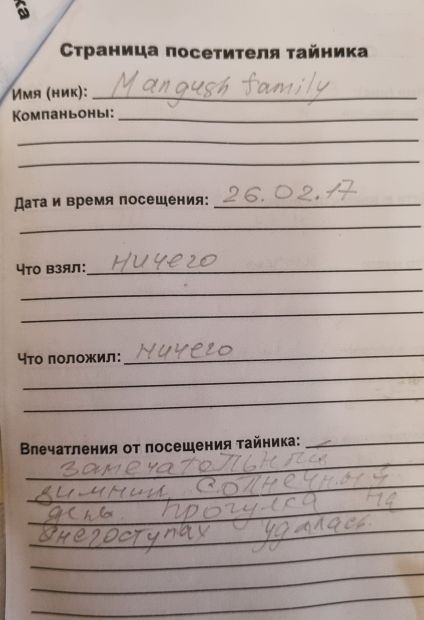 ка
Страница посетителя тайника
Имя (ник): Mangush family
Компаньоны:
Дата и время посещения: 26.02.17
Что взял: ничего
Что положил: ничего
Впечатления от посещения тайника:
замечательный
зимний солнечный
день. Прогулка на
снегоступах удалась.